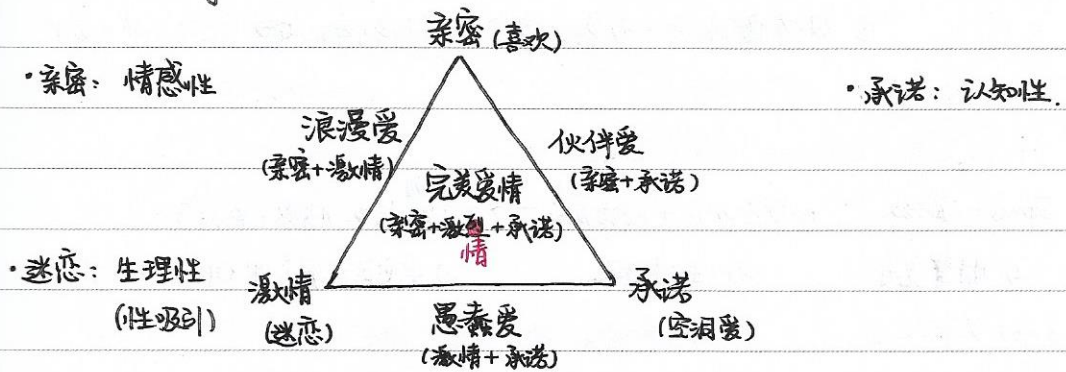 亲密(喜欢)
·亲密：情感性
·承诺：认知性.
浪漫爱
(亲密+激情)
伙伴爱
(亲密+承诺)
完美爱情
(亲密+激烈+承诺)
情
·迷恋：生理性
(性吸引)
激情
(迷恋)
承诺
(空洞爱)
愚蠢爱
(激情+承诺)